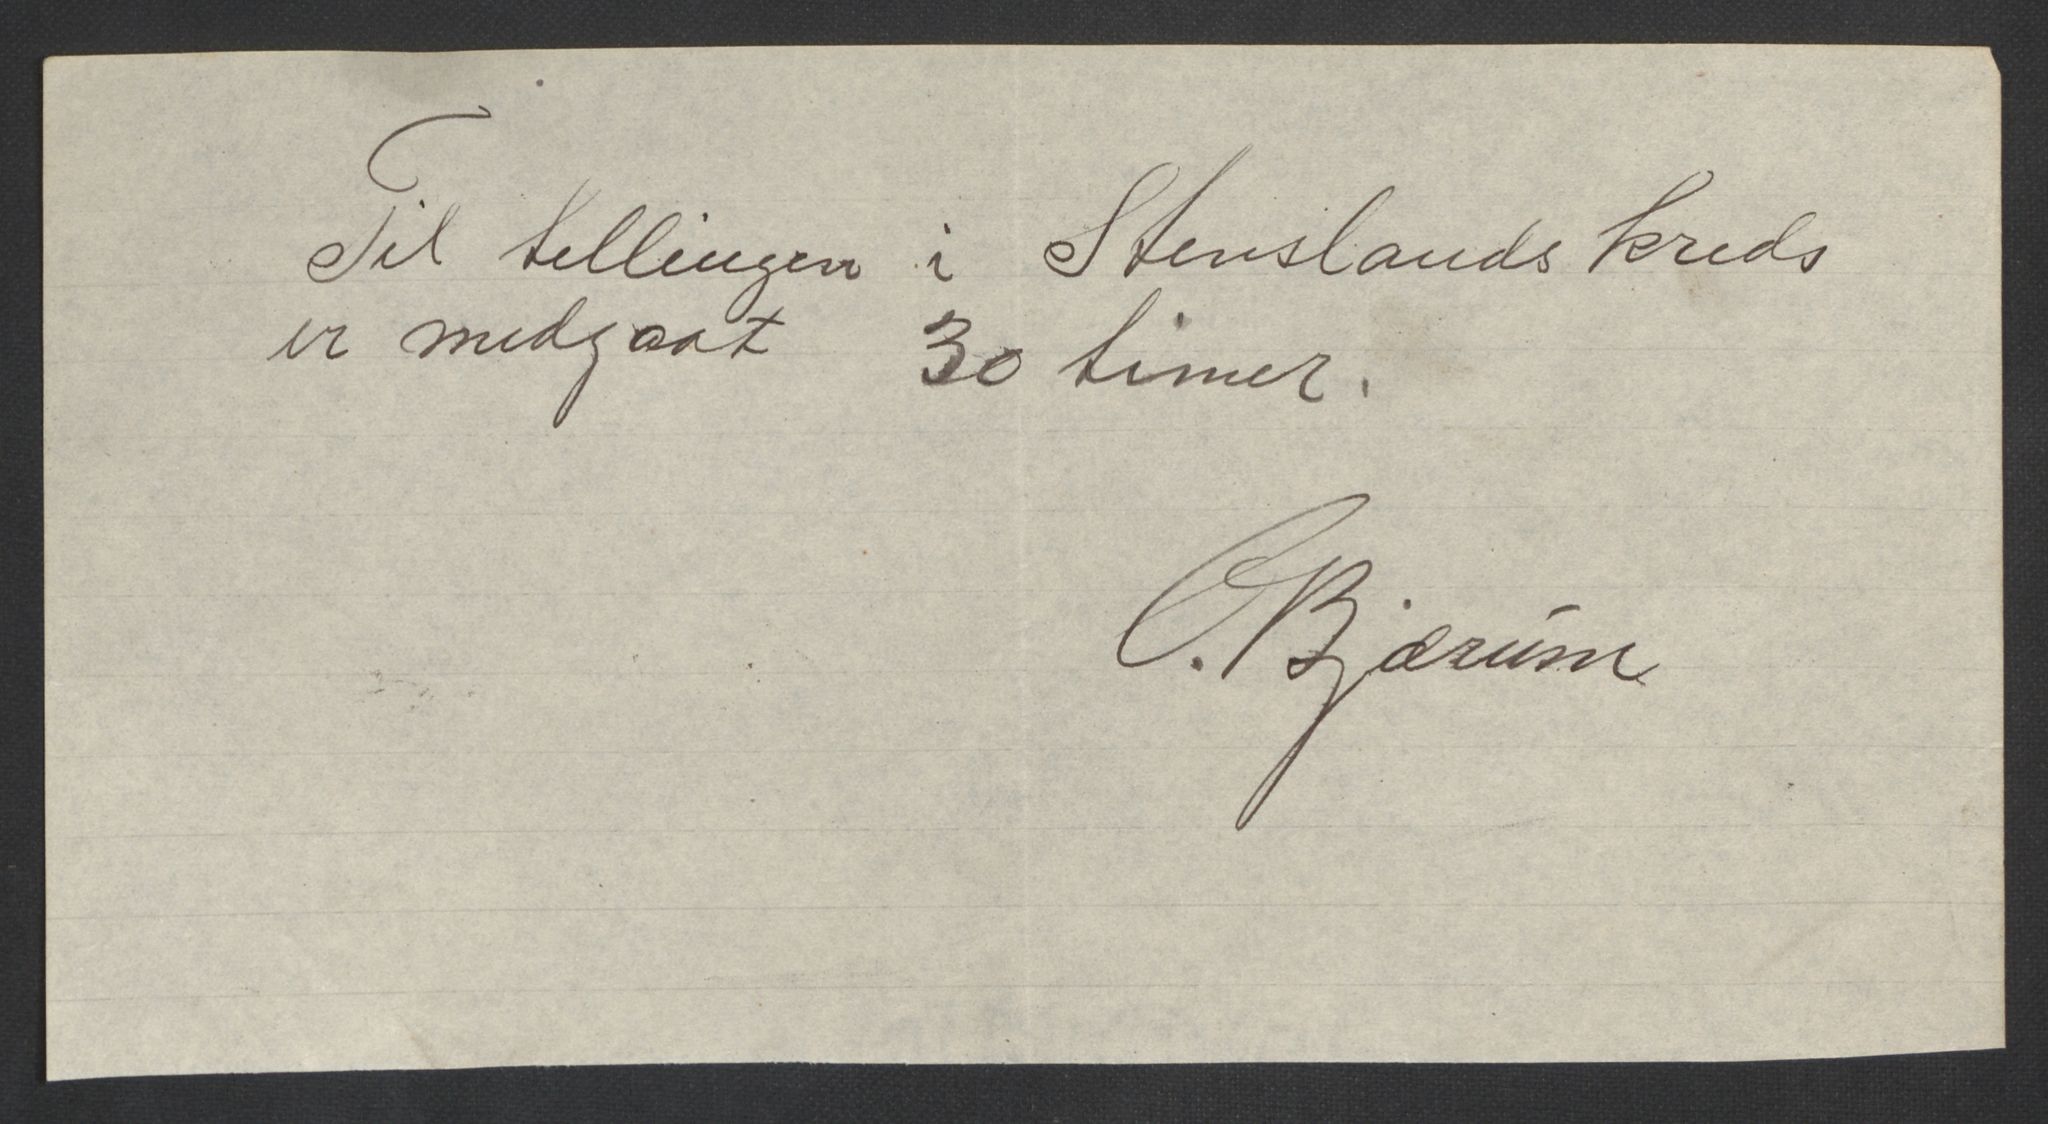 Til tellingen i Stenslands kreds
er medgaat 30 timer.
O. Bjærum